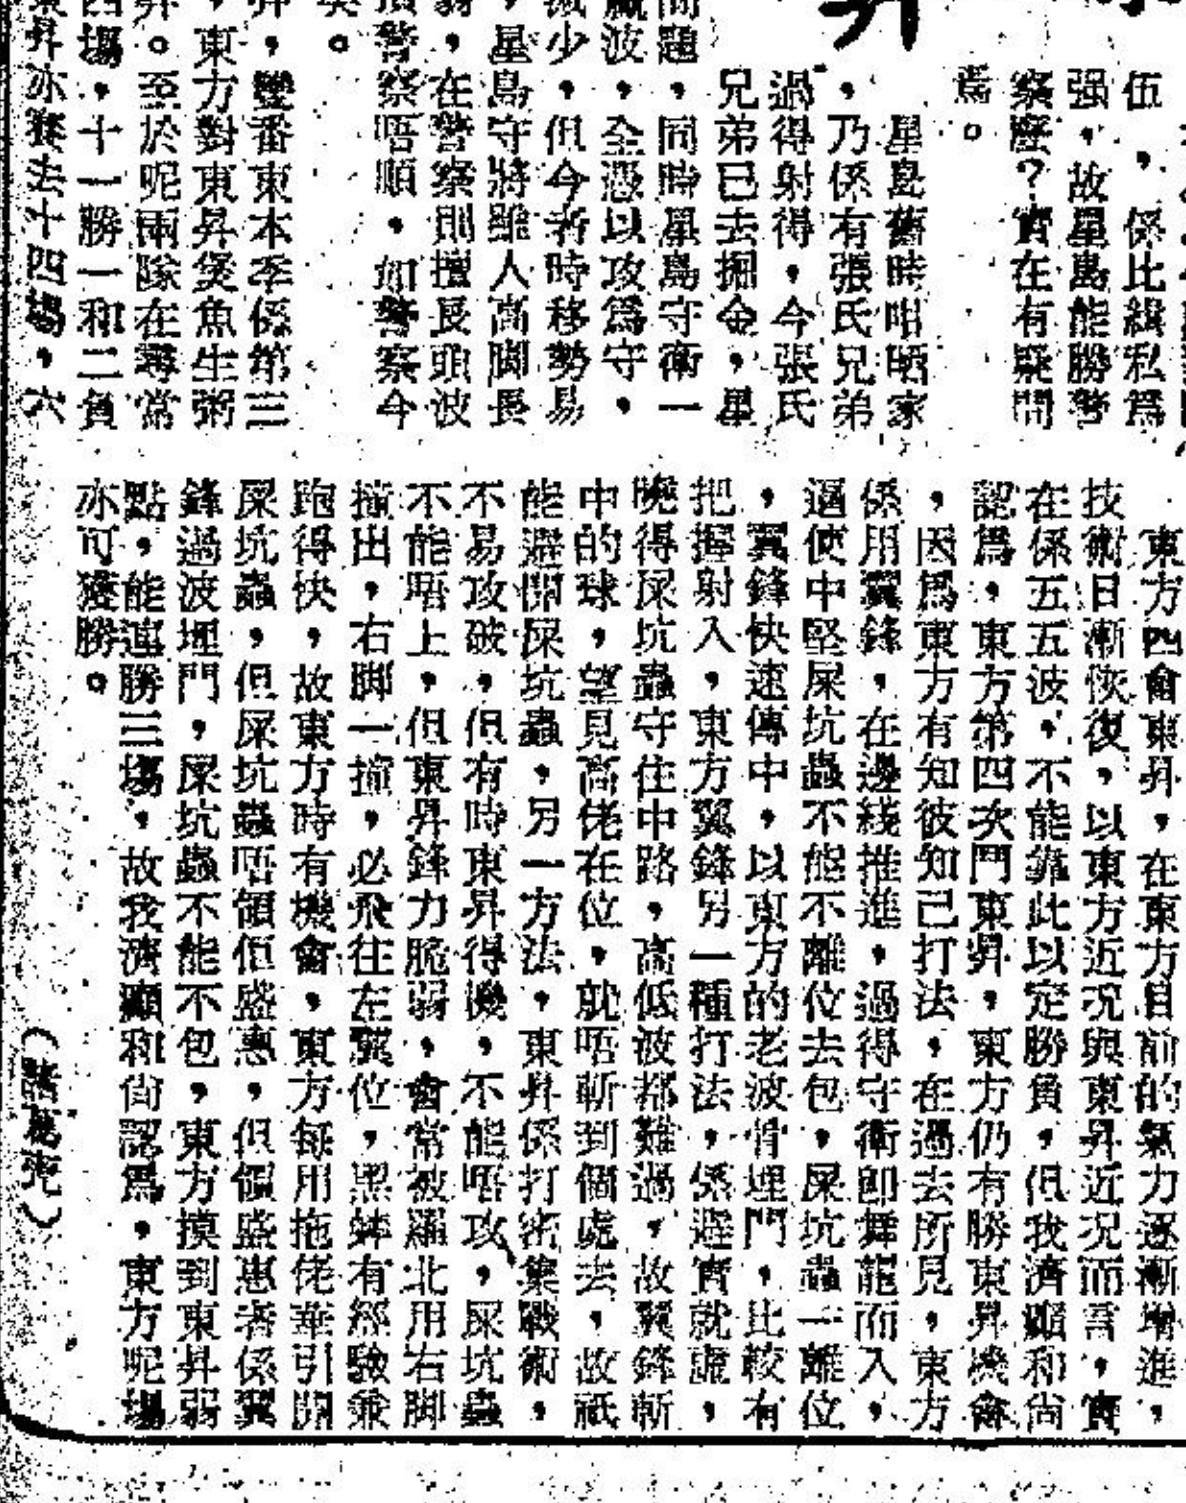 昇
伍，係比緝私爲
强，故星島能勝警
察麽？實在有疑問
焉。
星島舊時咁晒家
，乃係有張氏兄弟
過得射得，今張氏
兄弟已去掘金，星
問題，同時星島守衛一
贏波，全憑以攻爲守，
減少，但今者時移勢易
，星島守將雖人高脚長
弱，在警察則擅長頭波
警察唔順，如警察今
矣。
，雙番東本季係第三
，東方對東昇煲魚生粥
昇。至於呢兩隊在尋常
四場，十一勝一和二負
東昇亦賽去十四場，六
東方四會東昇，在東方目前的氣力逐漸增進，
技術日漸恢復，以東方近況與東昇近況而言，實
在係五五波，不能靠此以定勝負，但我濟癲和尙
認爲，東方第四次鬥東昇，東方仍有勝東昇機會
，因爲東方有知彼知己打法，在過去所見，東方
係用翼鋒，在邊綫推進，過得守衛卽舞龍而入，
逼使中堅屎坑蟲不能不離位去包，屎坑蟲一離位
，翼鋒快速傳中，以東方的老波骨埋門，比較有
把握射入，東方翼鋒另一種打法，係避實就虛，
曉得屎坑蟲守住中路，高低波都難過，故翼鋒斬
中的球，望見高佬在位，就唔斬到個處去，故祇
能避開屎坑蟲，另一方法，東昇係打密集戰術，
不易攻破，但有時東昇得機，不能唔攻，屎坑蟲
不能唔上，但東昇鋒力脆弱，會常被羅北用右脚
撞出，右脚一撞，必飛往左翼位，黑蟀有經驗兼
跑得快，故東方時有機會，東方每用拖佬華引開
屎坑蟲，但屎坑蟲唔領但盛惠，但領盛惠者係翼
鋒過波埋門，屎坑蟲不能不包，東方摸到東昇弱
點，能連勝三場，故我濟癲和尙認爲，東方呢場
亦可獲勝。
（諸葛亮）